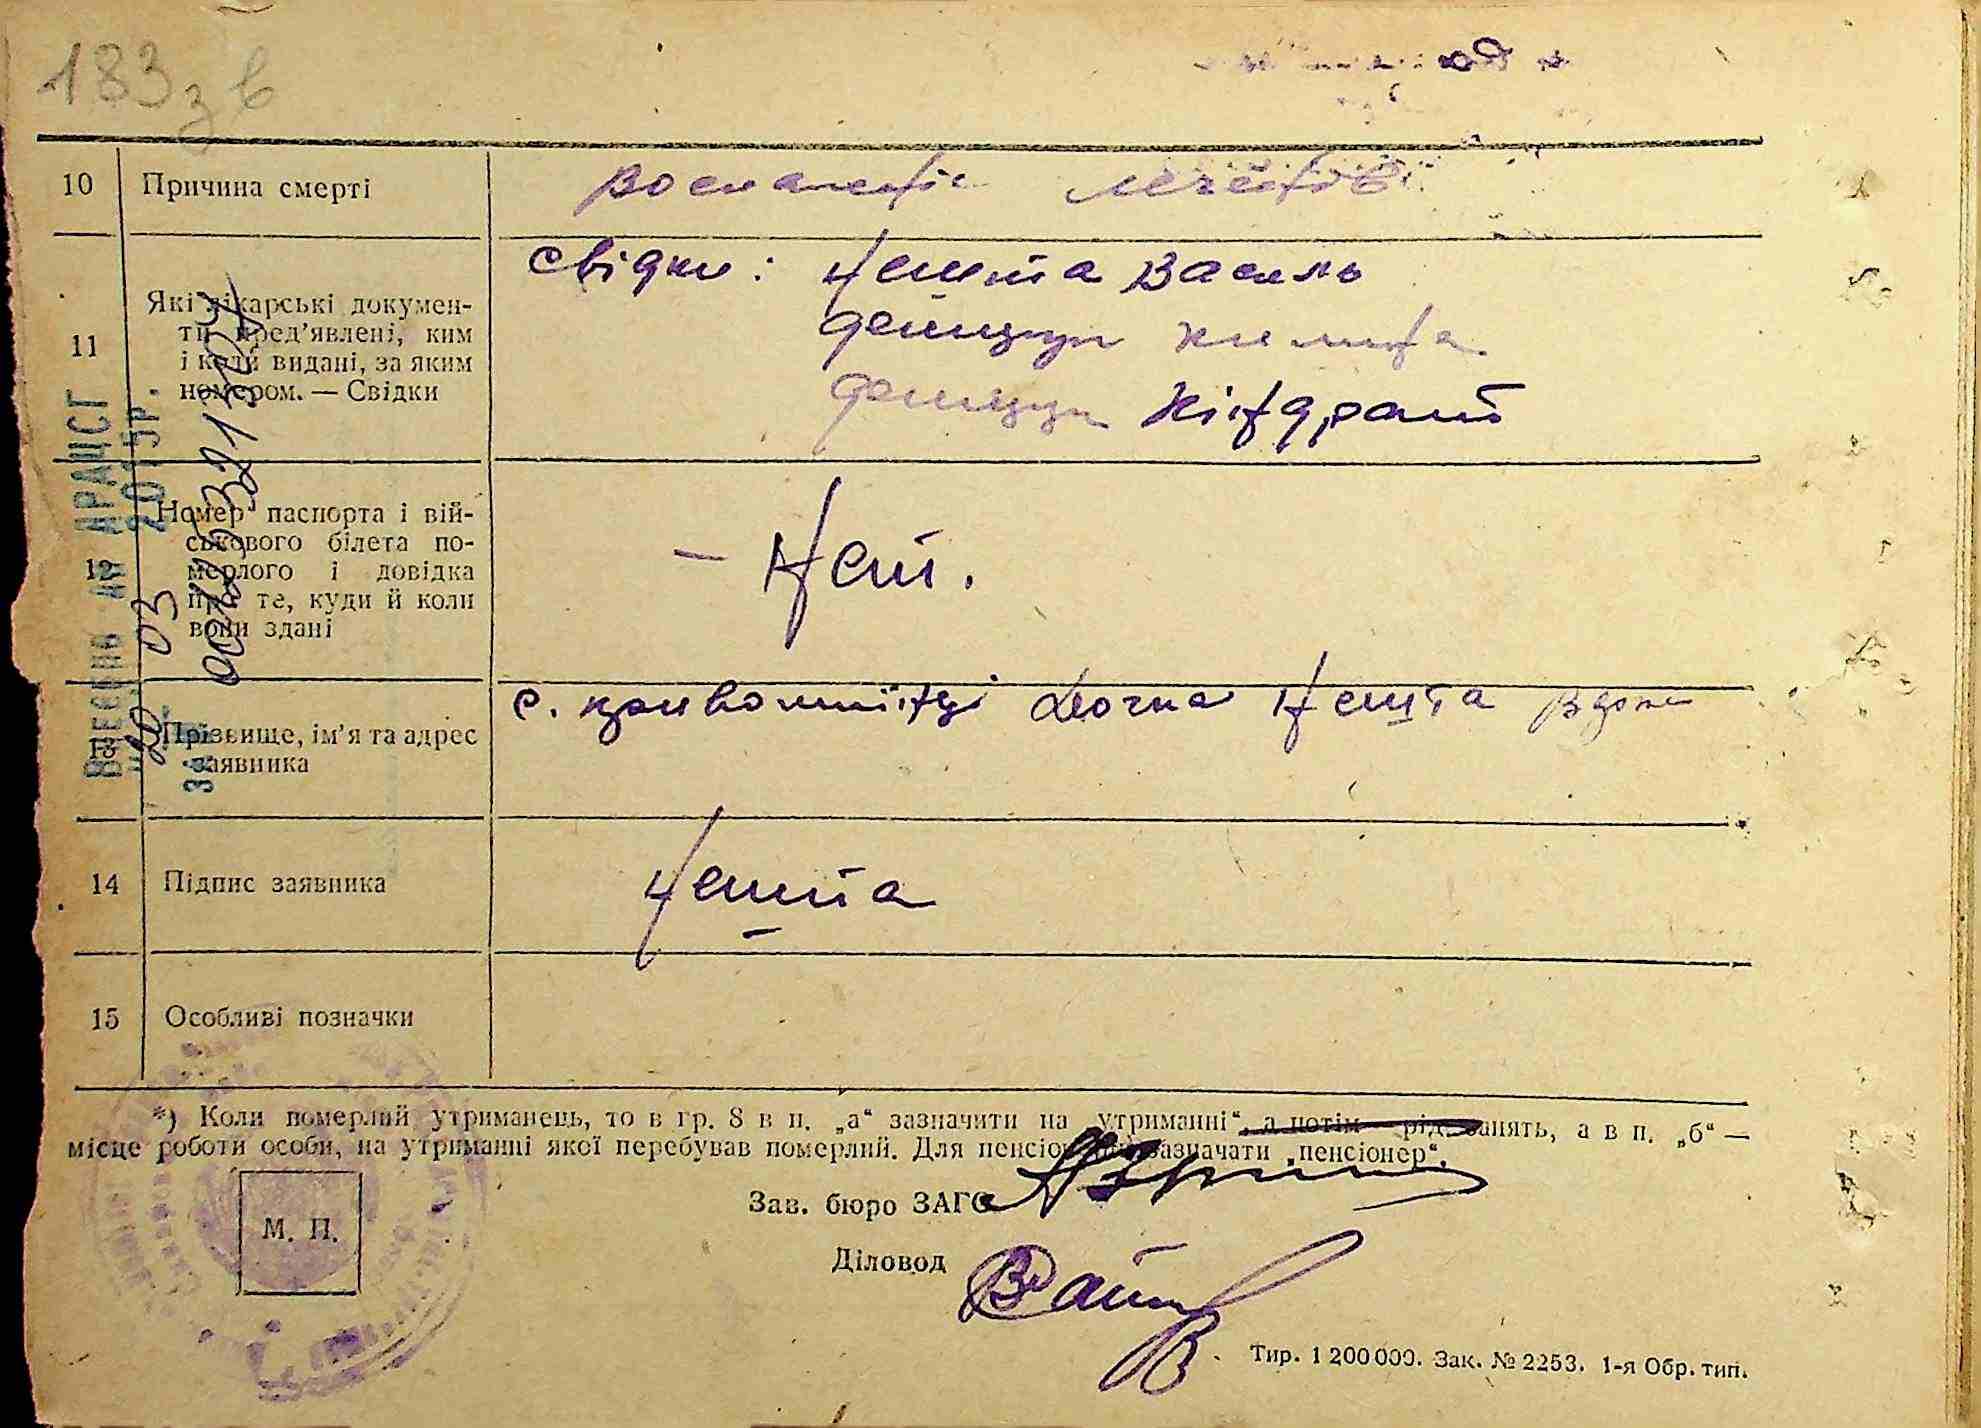 183 зв
10 Причина смерті
воспаленіе легенів
11 Які лікарські докумен-
ти пред’явлені, ким
і коли видані, за яким
номером. — Свідки
свідки: Нешта Василь
донщун
донщун Кіндрат
12 Номер паспорта і вій-
ськового білета по-
мерлого і довідка
про те, куди й коли
вони здані
— Нет.
13 Прізвище, ім’я та адрес
заявника
с. дочка Нешта
14 Підпис заявника
Нешта
15 Особливі позначки
*) Коли померлий утриманець, то в гр. 8 в п. „а“ зазначити на утриманні“, а потім рід занять, а в п. „б“ —
місце роботи особи, на утриманні якої перебував померлий. Для пенсіонерів зазначати „пенсіонер“.
М. П.
Зав. бюро ЗАГС
Діловод
Тир. 1 200 000. Зак. № 2253. 1-я Обр. тип.
ВНЕСЕНО ДО ДРАЦСГ
20 03 2015р.
ЗА №